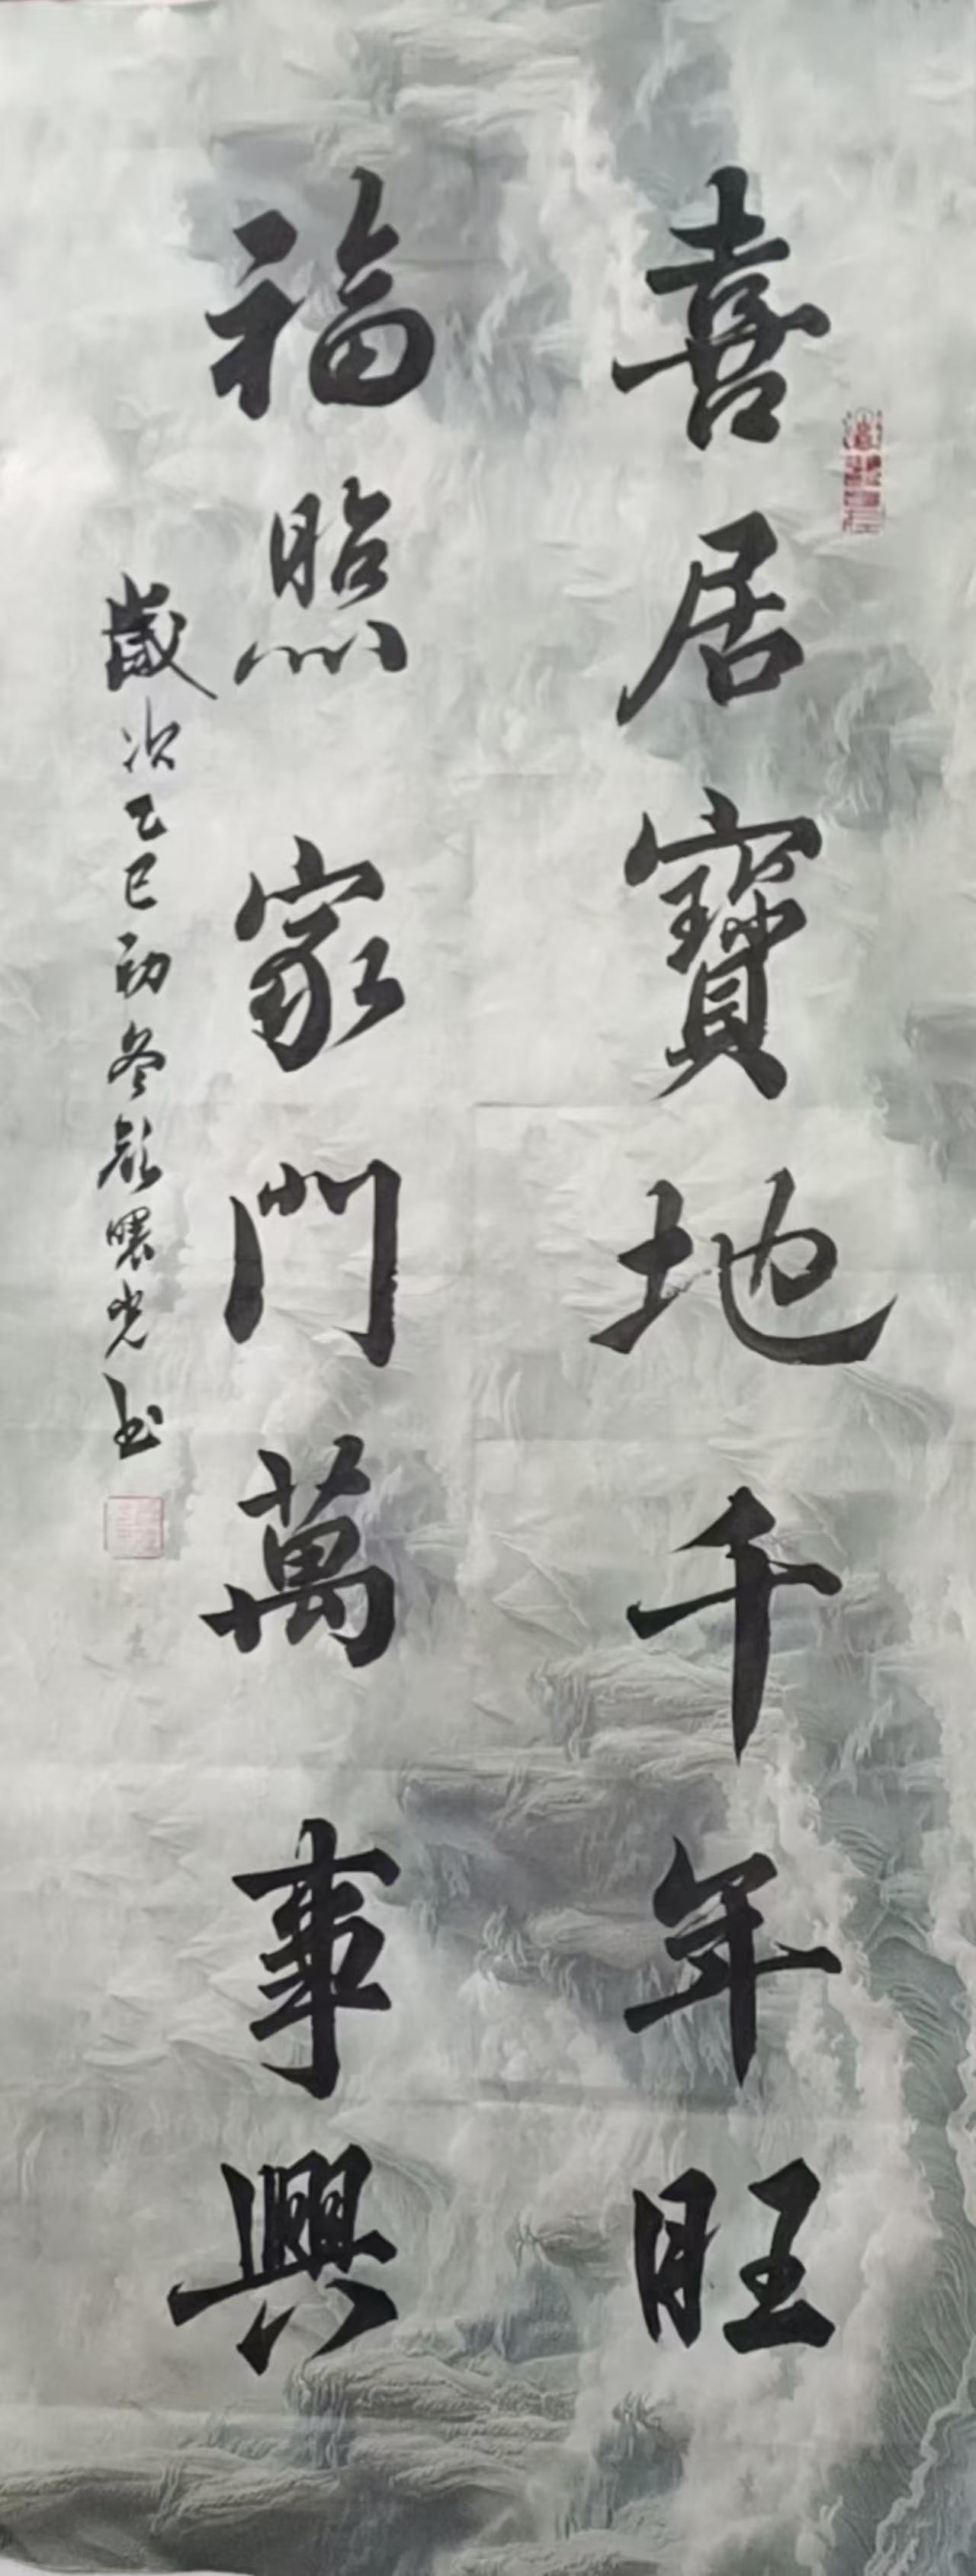 喜居寶地千年旺
福照家門萬事興
歲次乙巳初冬顏曙光书